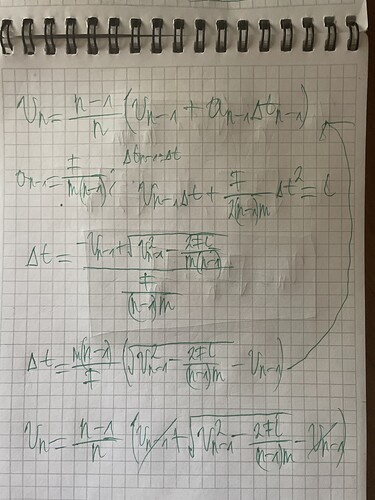 Vn = n-1/n (Vn-1 + an-1 Δtn-1)
an-1 = F/m(n-1); Δtn-1=Δt
Vn-1Δt + F/2(n-1)m Δt² = l
Δt = (-Vn-1 + √(Vn-1² - 2Fl/m(n-1)))/(F/(n-1)m)
Δt = m(n-1)/F (√(Vn-1² - 2Fl/(n-1)m) - Vn-1)
Vn = n-1/n (Vn-1 + √(Vn-1² - 2Fl/(n-1)m) - Vn-1)